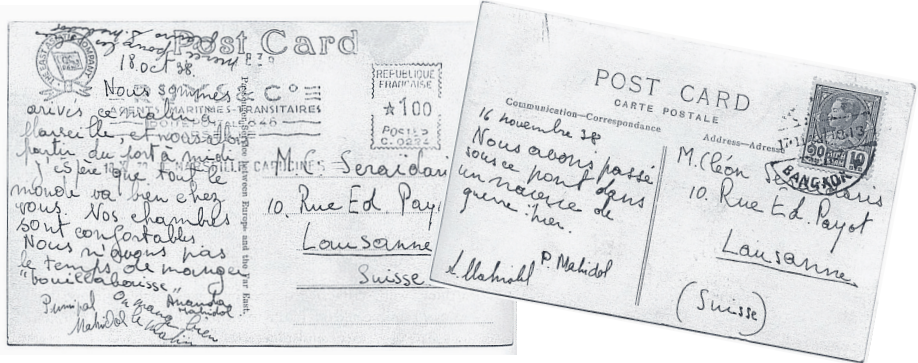 Post Card
THE EAST ASIATIC COMPANY
18 Oct 38.
Nous sommes
arrivés ce matin a
Marseille, et nous allons
partir du port a midi
J'espère que tout le
monde va bien chez
vous. Nos chambres
sont confortables
Nous n'avons pas
le temps de manger
"bouillabaisse"
On mange bien
le matin
Pumipol
Mahidol
Ananda
Mahidol
AGENTS MARITIMES-TRANSITAIRES
between Europe and the Far East.
REPUBLIQUE
FRANCAISE
★100
POSTES
C. 0224
M. C. Seraïdari
10. Rue Ed. Payot
Lausanne
Suisse
POST CARD
CARTE POSTALE
Communication—Correspondance
Address—Adresse
16 novembre 38
Nous avons passé
sous ce pont dans
un navire de
guerre hier.
A. Mahidol P. Mahidol
BANGKOK
10
M. Cléon Seraïdaris
10. Rue Ed. Payot
Lausanne.
(Suisse)